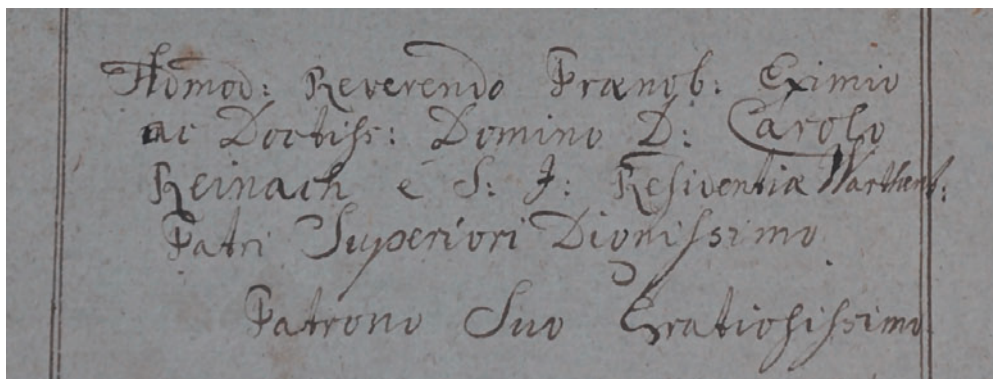 Admod: Reverendo Prænob: Eximio
ac Doctiss: Domino D: Carolo
Reinach e S: J: Residentiæ Warthens:
Patri Superiori Dignissimo
Patrono Suo Gratiosissimo